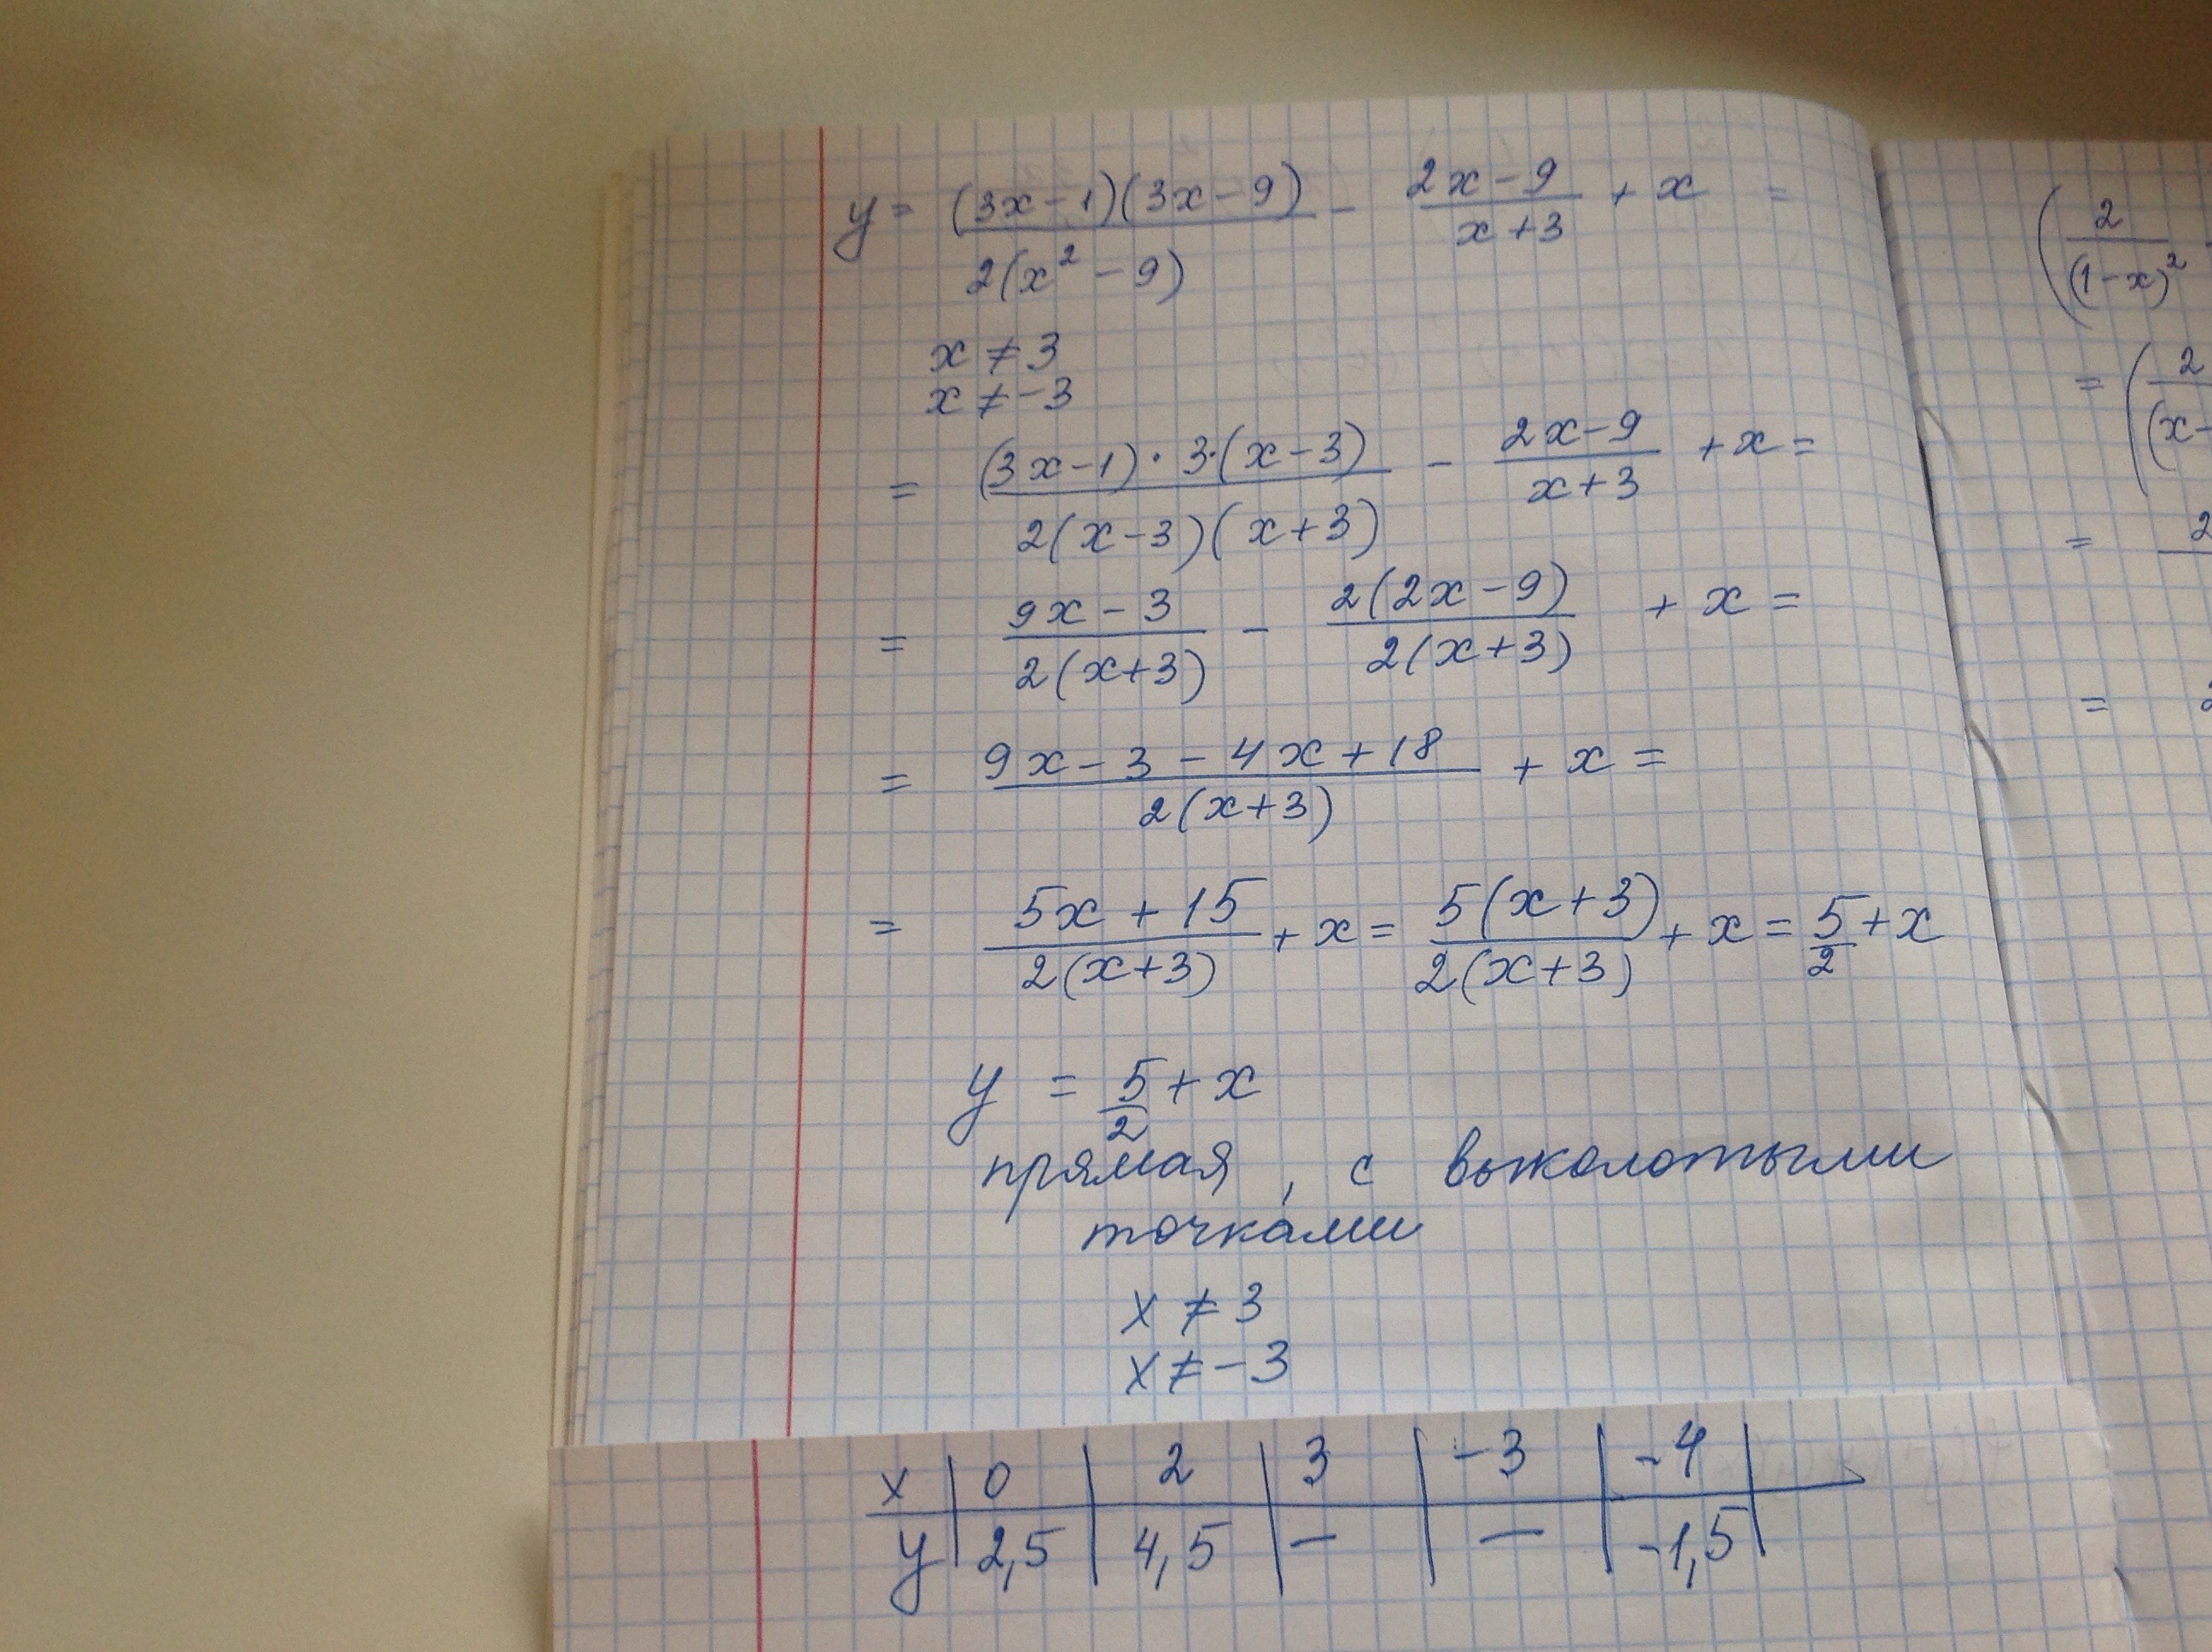 y = (3x-1)(3x-9)/2(x² - 9) - 2x-9/x+3 + x =
x ≠ 3
x ≠ -3
= (3x-1)·3·(x-3)/2(x-3)(x+3) - 2x-9/x+3 + x =
= 9x-3/2(x+3) - 2(2x-9)/2(x+3) + x =
= 9x-3-4x+18/2(x+3) + x =
= 5x+15/2(x+3) + x = 5(x+3)/2(x+3) + x = 5/2 + x
y = 5/2 + x
прямая, с выколотыми
точками
x ≠ 3
x ≠ -3
x | 0 | 2 | 3 | -3 | -4 |
y | 2,5 | 4,5 | — | — | -1,5 |
(2/(1-x)²
= (2/(x-
= 2
= 2